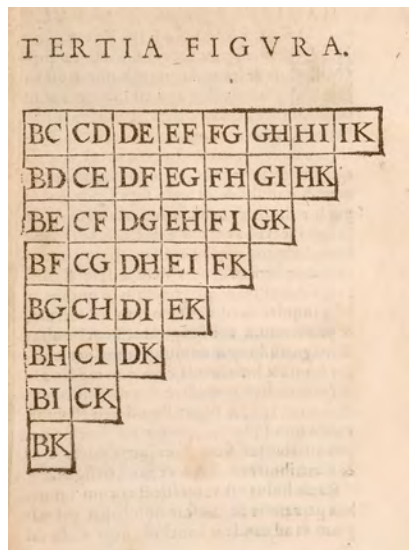 TERTIA FIGVRA.
BC CD DE EF FG GH HI IK
BD CE DF EG FH GI HK
BE CF DG EH FI GK
BF CG DH EI FK
BG CH DI EK
BH CI DK
BI CK
BK